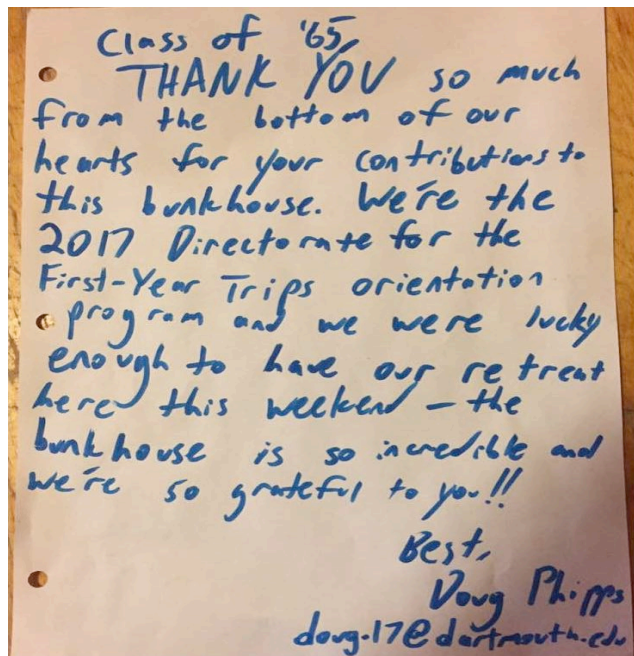 Class of '65,
THANK YOU so much
from the bottom of our
hearts for your contributions to
this bunkhouse. We're the
2017 Directorate for the
First-Year Trips orientation
program and we were lucky
enough to have our retreat
here this weekend – the
bunkhouse is so incredible and
we're so grateful to you!!
Best,
Doug Phipps
doug.17@dartmouth.edu